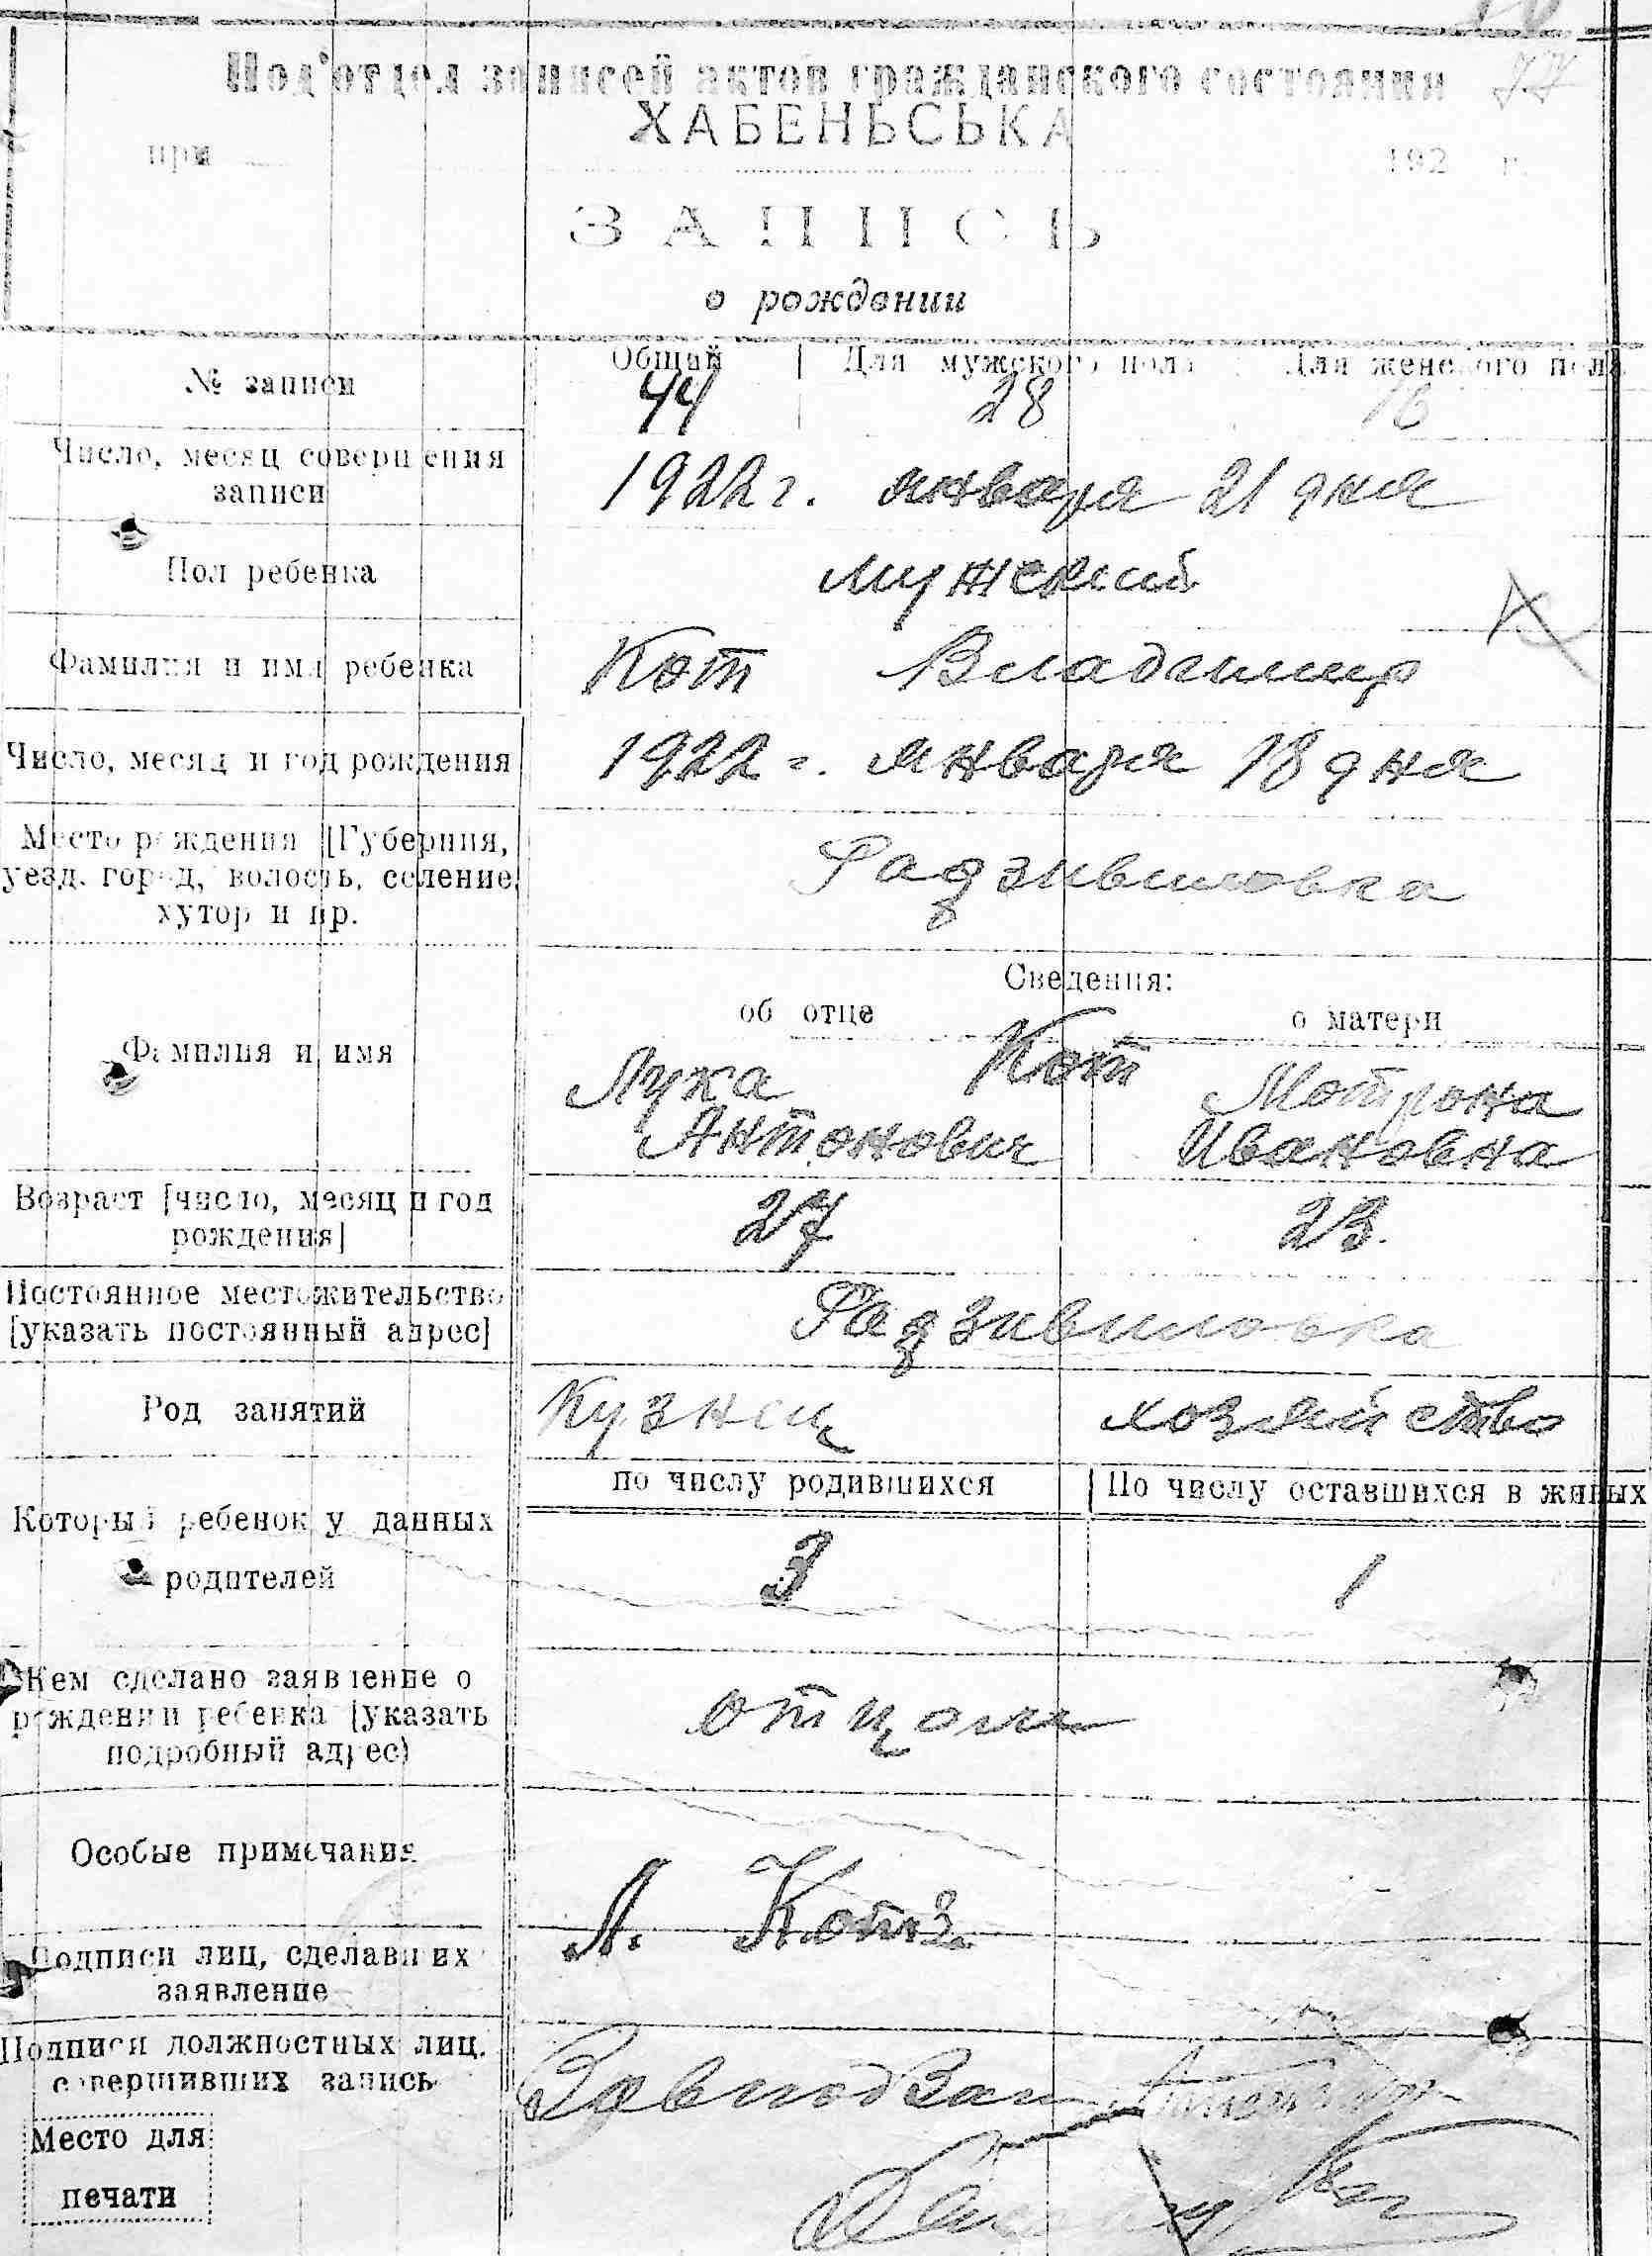 Под'отдел записей актов гражданского состояния 77
ХАБЕНЬСЬКА
при 192 г.
ЗАПИСЬ
о рождении
№ записи
Общий Для мужского пола Для женского пола
44 28 16
Число, месяц совершения
записи
1922 г. января 21 дня
Пол ребенка
мужский
Фамилия и имя ребенка
Кот Владимир
Число, месяц и год рождения
1922 г. января 18 дня
Место рождения [Губерния,
уезд, город, волость, селение,
хутор и пр.
Радзивиловка
Сведения:
об отце о матери
Фамилия и имя
Кот
Лука Мотрона
Антонович Ивановна
Возраст [число, месяц и год
рождения]
27 23.
Постоянное местожительство
[указать постоянный адрес]
Радзивиловка
Род занятий
Кузнец хозяйство
по числу родившихся По числу оставшихся в живых
Который ребенок у данных
родителей
3 1
Кем сделано заявление о
рождении ребенка [указать
подробный адрес)
отцом
Особые примечания
Л. Котъ
Подписи лиц, сделавших
заявление
Подписи должностных лиц,
совершивших запись
Завподзаг
Место для
печати